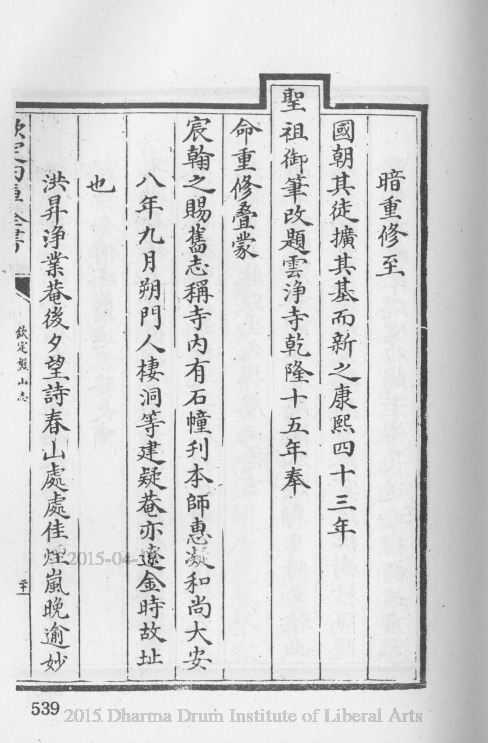 暗重修至
國朝其徒擴其基而新之康熙四十三年
聖祖御筆改題雲浄寺乾隆十五年奉
命重修叠蒙
宸翰之賜舊志稱寺内有石幢刋本師惠凝和尚大安
八年九月朔門人棲洞等建疑菴亦遼金時故址
也
洪昇浄業菴後夕望詩春山處處佳煙嵐晚逾妙
欽定四庫全書
欽定盤山志
二十一
539
2015-04-
2015 Dharma Drum Institute of Liberal Arts